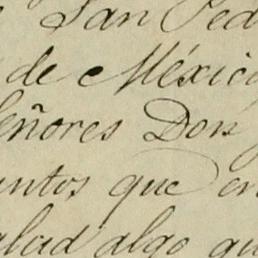 San Ped
de México
Señores Don
untos que en
algo qu